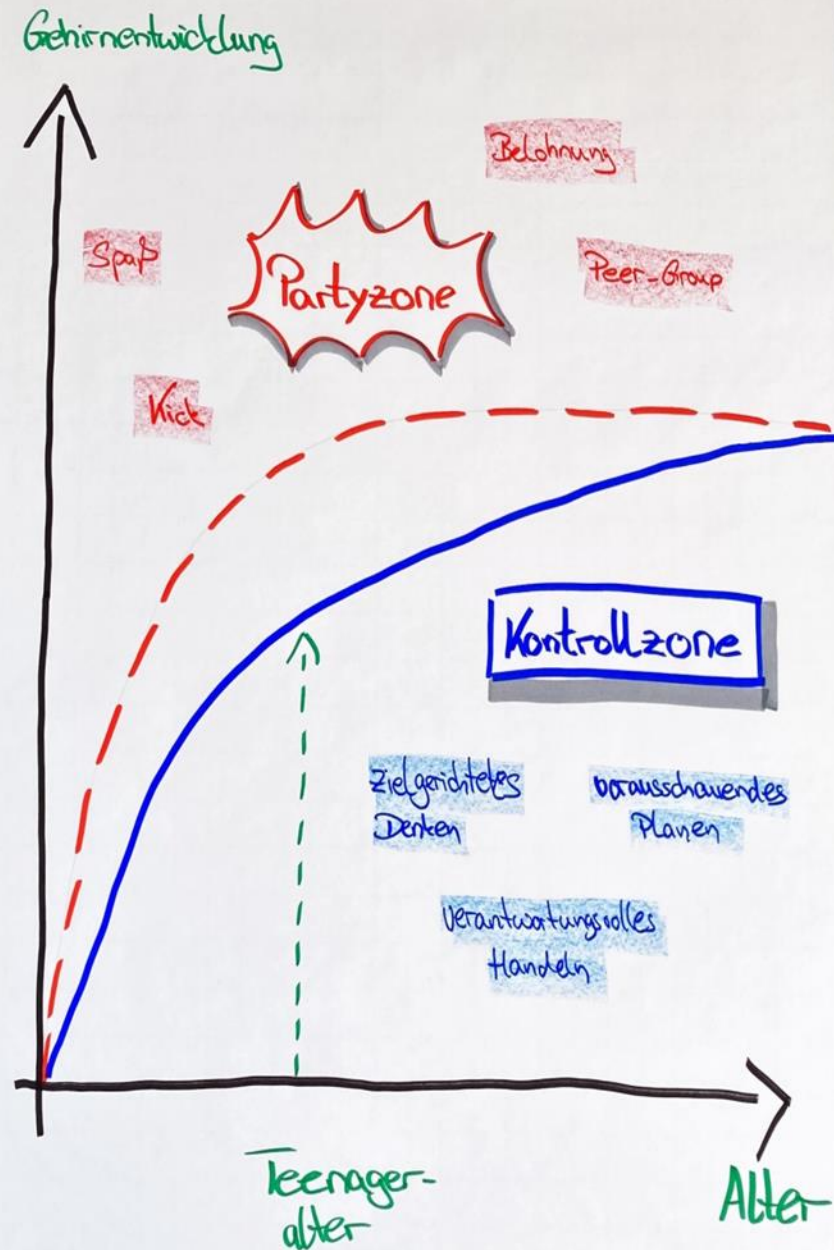 Gehirnentwicklung
Belohnung
Spaß
Partyzone
Peer-Group
Kick
Kontrollzone
Zielgerichtetes
Denken
vorausschauendes
Planen
verantwortungsvolles
Handeln
Teenager-
alter
Alter